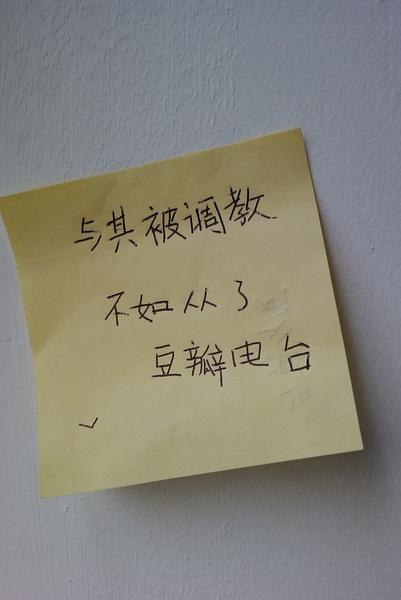 与其被调教
不如从了
豆瓣电台